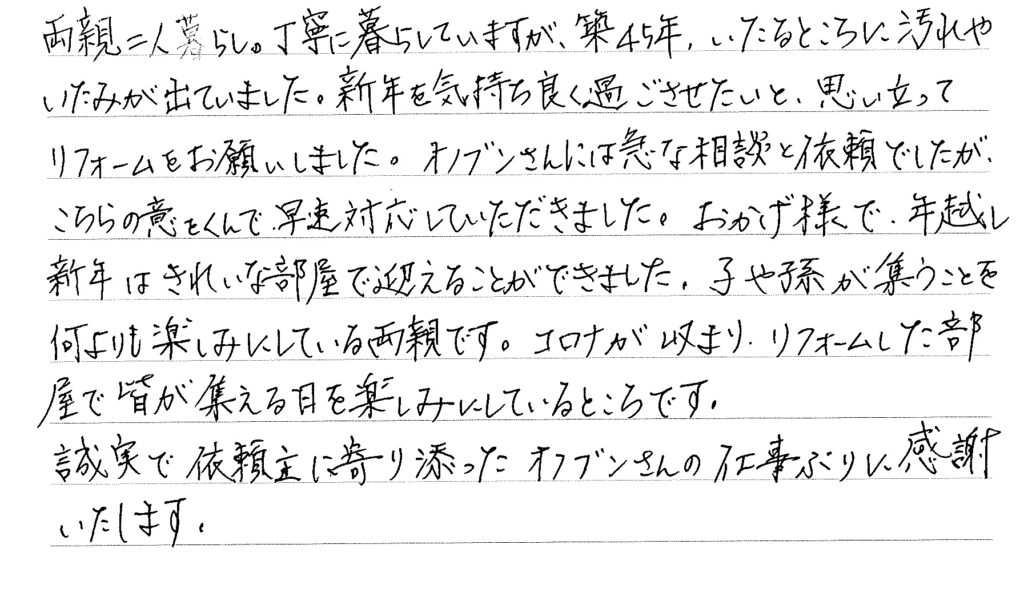 両親二人暮らし。丁寧に暮らしていますが、築45年、いたるところに汚れや
いたみが出ていました。新年を気持ち良く過ごさせたいと、思い立って
リフォームをお願いしました。オノブンさんには急な相談と依頼でしたが、
こちらの意をくんで、早速対応していただきました。おかげ様で、年越し
新年はきれいな部屋で迎えることができました。子や孫が集うことを
何よりも楽しみにしている両親です。コロナが収まり、リフォームした部
屋で皆が集える日を楽しみにしているところです。
誠実で依頼主に寄り添ったオノブンさんの仕事ぶりに感謝
いたします。